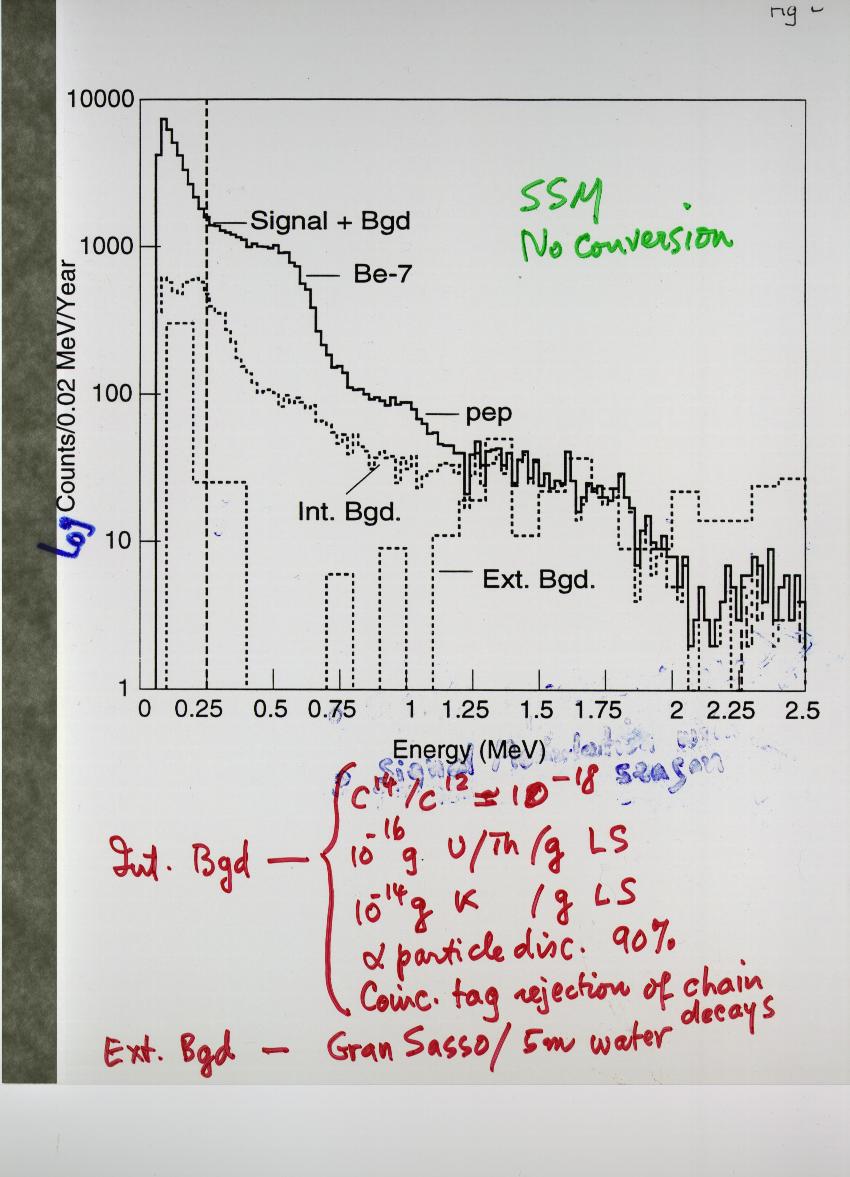 10000
SSM
No conversion
Signal + Bgd
1000
Be-7
Log Counts/0.02 MeV/Year
100
pep
Int. Bgd.
10
Ext. Bgd.
1
0 0.25 0.5 0.75 1 1.25 1.5 1.75 2 2.25 2.5
Energy (MeV)
Signal
season
C¹⁴/C¹² = 10⁻¹⁸
Int. Bgd — 10⁻¹⁶ g U/Th /g LS
10⁻¹⁴ g K /g LS
α particle disc. 90%
Coinc. tag rejection of chain
decays
Ext. Bgd — Gran Sasso / 5m water